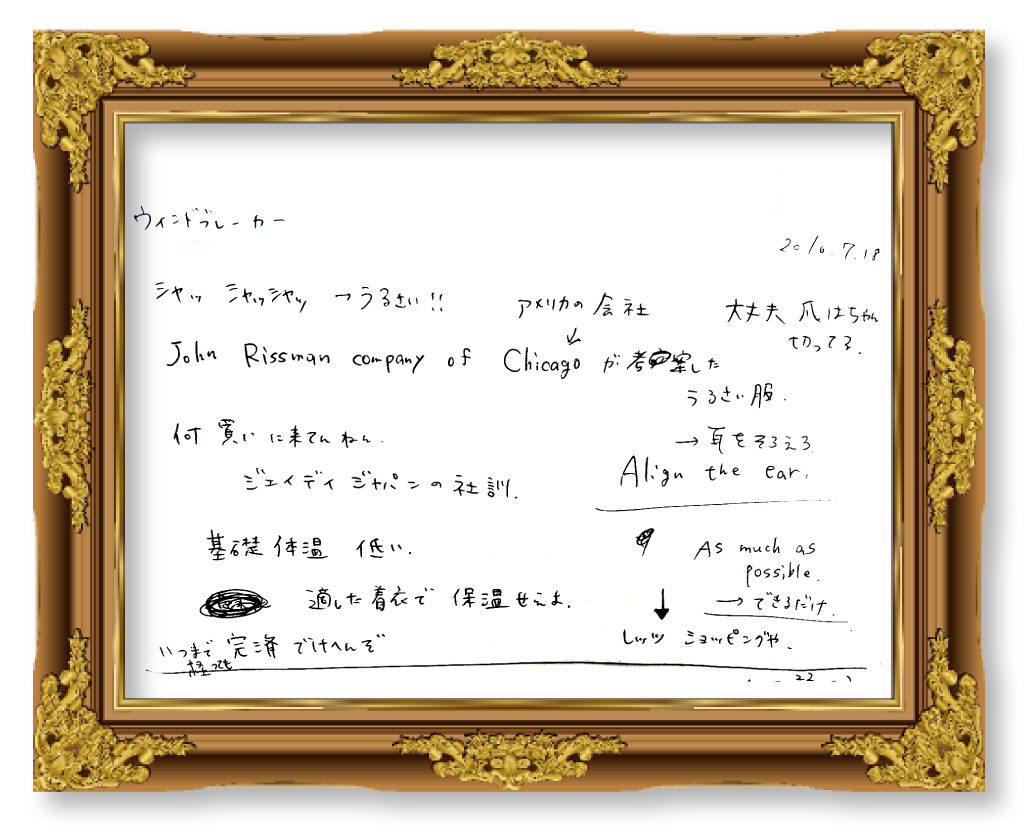 ウィンドブレーカー
2016.7.18
シャッ シャッシャッ →うるさい!!
アメリカの会社
大丈夫 爪はちゃん
切ってる.
John Rissman company of Chicagoが考案した
うるさい服.
何買いに来てんねん.
→耳をそろえろ
Align the ear.
ジェイディジャパンの社訓.
基礎体温 低い.
As much as
possible.
適した着衣で 保温せえよ.
→できるだけ.
↓
レッツ ショッピングや.
いつまで完済でけへんぞ
経っても
22